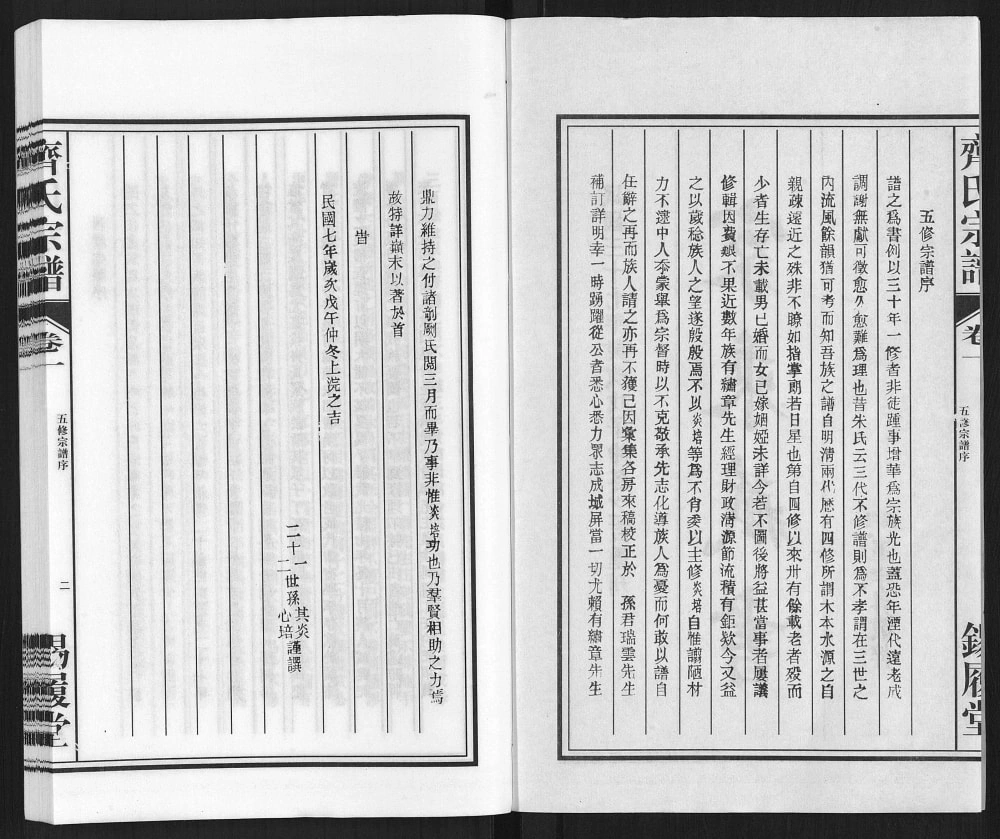 齊氏宗譜
卷一
五修宗譜序
錫履堂
五修宗譜序
譜之爲書例以三十年一修者非徒踵事增華爲宗族光也蓋恐年湮代遠老成
凋謝無獻可徵愈久愈難爲理也昔朱氏云三代不修譜則爲不孝謂在三世之
內流風餘韻猶可考而知吾族之譜自明淸兩代歷有四修所謂木本水源之自
親疎遠近之殊非不瞭如指掌朗若日星也第自四修以來卅有餘載老者歿而
少者生存亡未載男已婚而女已嫁姻婭未詳今若不圖後將益甚當事者屢議
修輯因費艱不果近數年族有繡章先生經理財政淸源節流積有鉅欵今又益
之以歲稔族人之望遂殷殷焉不以炎培等爲不肖委以主修炎培自惟譾陋材
力不逮中人忝蒙舉爲宗督時以不克敬承先志化導族人爲憂而何敢以譜自
任辭之再而族人請之亦再不獲已因彙集各房來稿校正於　孫君瑞雲先生
補訂詳明幸一時踴躍從公者悉心悉力眾志成城屏當一切尤賴有繡章先生
鼎力維持之付諸剞劂氏閱三月而畢乃事非惟炎培功也乃羣賢相助之力焉
故特詳巔末以著於首
旹
民國七年歲次戊午仲冬上浣之吉
二十一二世孫其炎心培謹譔
齊氏宗譜
卷一
五修宗譜序
二
錫履堂